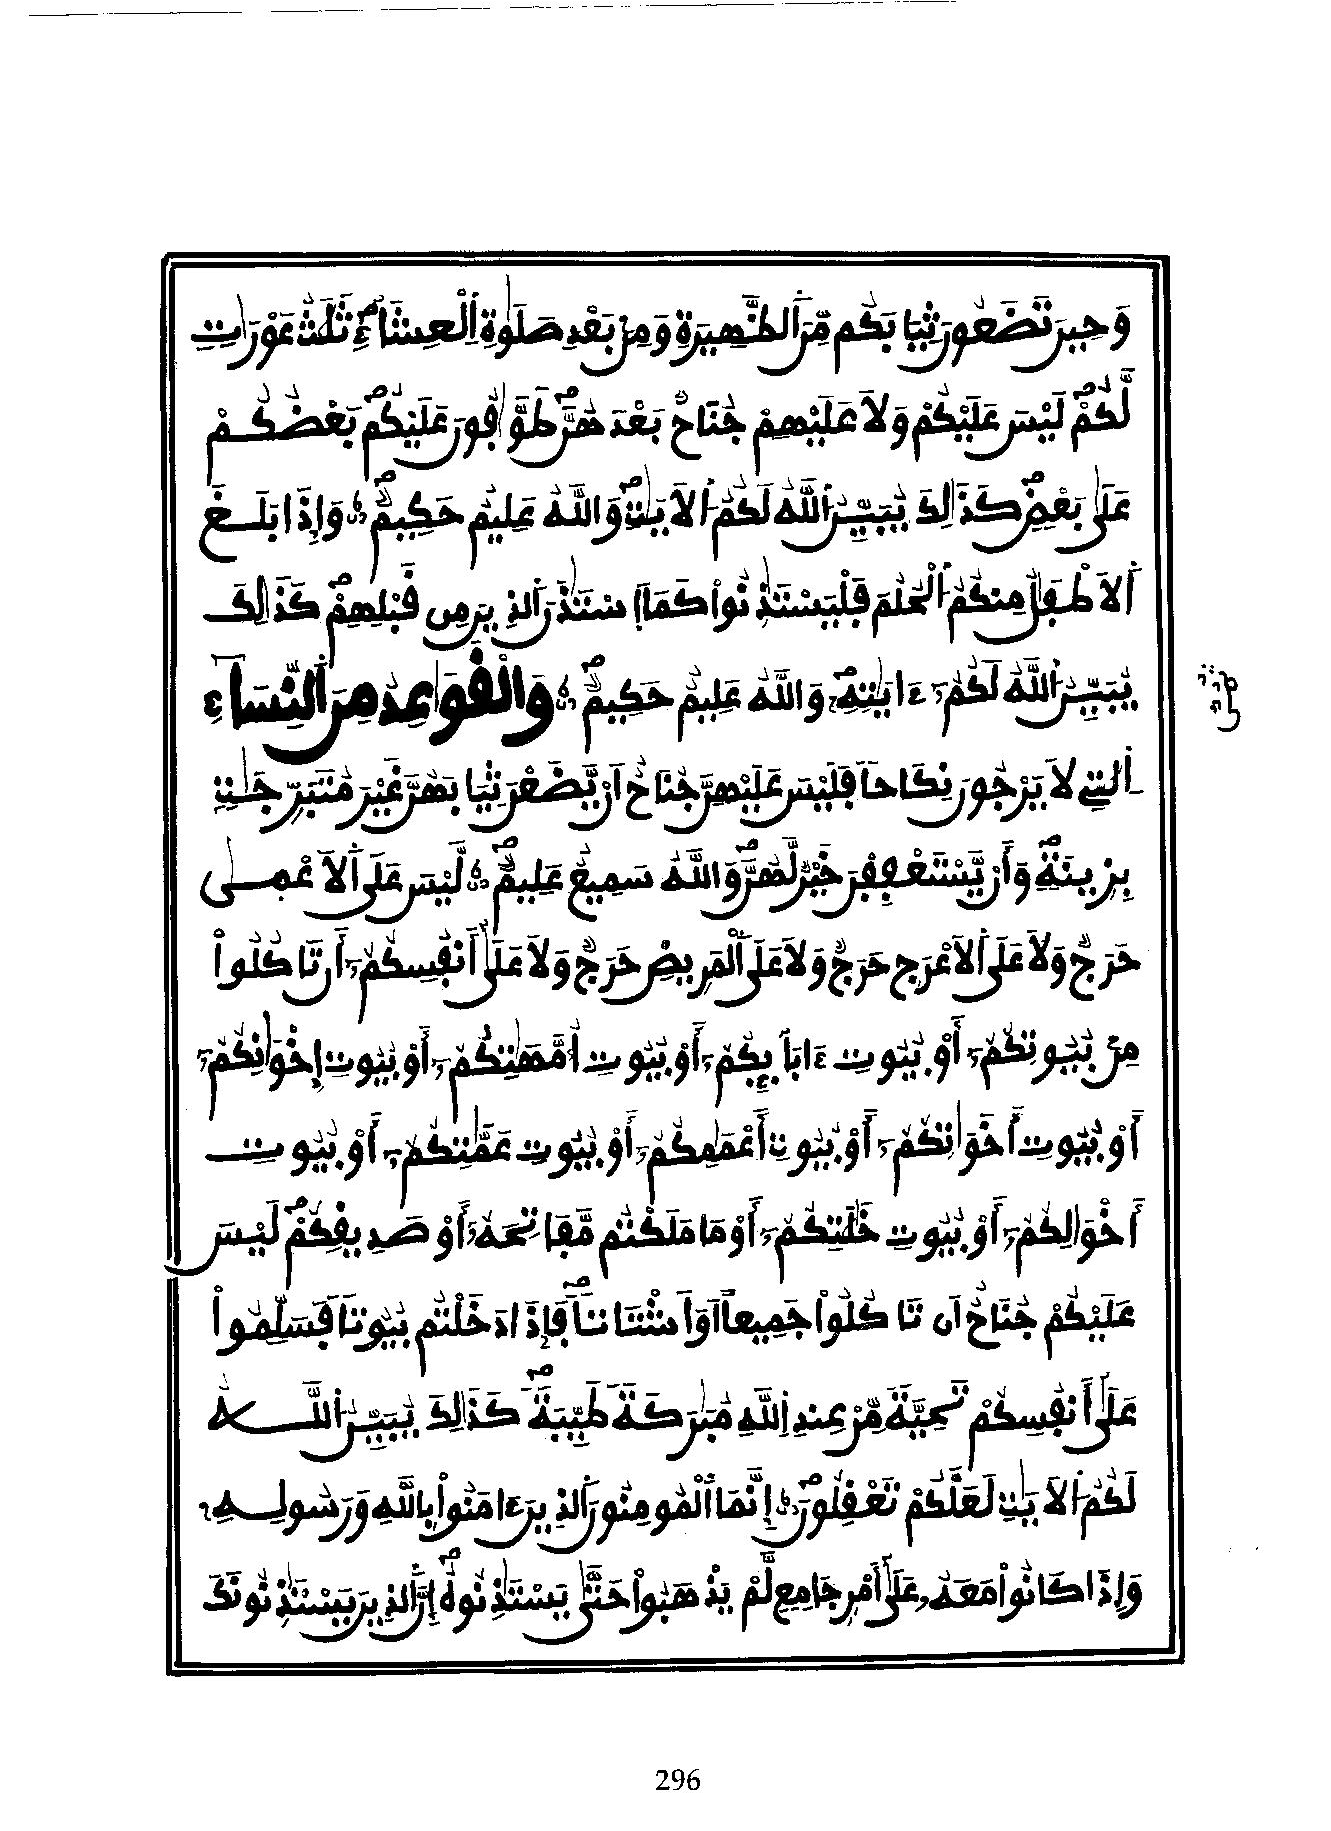 وَحِينَ تَضَعُونَ ثِيَابَكُم مِّنَ ٱلظَّهِيرَةِ وَمِنۢ بَعْدِ صَلَوٰةِ ٱلْعِشَآءِ ثَلَٰثُ عَوْرَٰتٍ
لَّكُمْ لَيْسَ عَلَيْكُمْ وَلَا عَلَيْهِمْ جُنَاحٌ بَعْدَهُنَّ طَوَّٰفُونَ عَلَيْكُم بَعْضُكُمْ
عَلَىٰ بَعْضٖ كَذَٰلِكَ يُبَيِّنُ ٱللَّهُ لَكُمُ ٱلَايَٰتِ وَٱللَّهُ عَلِيمٌ حَكِيمٌ وَإِذَا بَلَغَ
ٱلَاطْفَٰلُ مِنكُمُ ٱلْحُلُمَ فَلْيَسْتَٰذِنُواْ كَمَا ٱسْتَٰذَنَ ٱلذِينَ مِن قَبْلِهِمْ كَذَٰلِكَ
يُبَيِّنُ ٱللَّهُ لَكُمُۥٓ ءَايَٰتِهِۦ وَٱللَّهُ عَلِيمٌ حَكِيمٌ وَٱلْقَوَٰعِدُ مِنَ ٱلنِّسَآءِ
ٱلَّٰتِے لَا يَرْجُونَ نِكَاحاً فَلَيْسَ عَلَيْهِنَّ جُنَاحٌ أَنْ يَّضَعْنَ ثِيَابَهُنَّ غَيْرَ مُتَبَرِّجَٰتِۭ
بِزِينَةٖ وَأَنْ يَّسْتَعْفِفْنَ خَيْرٌ لَّهُنَّ وَٱللَّهُ سَمِيعٌ عَلِيمٌ لَّيْسَ عَلَى ٱلَاعْمَىٰ
حَرَجٌ وَلَا عَلَى ٱلَاعْرَجِ حَرَجٌ وَلَا عَلَى ٱلْمَرِيضِ حَرَجٌ وَلَا عَلَىٰٓ أَنفُسِكُمُۥٓ أَن تَاكُلُواْ
مِنۢ بُيُوتِكُمُۥٓ أَوْ بُيُوتِ ءَابَآئِكُمُۥٓ أَوْ بُيُوتِ أُمَّهَٰتِكُمُۥٓ أَوْ بُيُوتِ إِخْوَٰنِكُمُۥٓ
أَوْ بُيُوتِ أَخَوَٰتِكُمُۥٓ أَوْ بُيُوتِ أَعْمَٰمِكُمُۥٓ أَوْ بُيُوتِ عَمَّٰتِكُمُۥٓ أَوْ بُيُوتِ
أَخْوَٰلِكُمُۥٓ أَوْ بُيُوتِ خَٰلَٰتِكُمُۥٓ أَوْ مَا مَلَكْتُم مَّفَاتِحَهُۥٓ أَوْ صَدِيقِكُمْ لَيْسَ
عَلَيْكُمْ جُنَاحٌ اَن تَاكُلُواْ جَمِيعاً اَوَ اَشْتَاتاً فَإِذَا دَخَلْتُم بُيُوتاً فَسَلِّمُواْ
عَلَىٰٓ أَنفُسِكُمْ تَحِيَّةً مِّنْ عِندِ ٱللَّهِ مُبَٰرَكَةً طَيِّبَةً كَذَٰلِكَ يُبَيِّنُ ٱللَّهُ
لَكُمُ ٱلَايَٰتِ لَعَلَّكُمْ تَعْقِلُونَ إِنَّمَا ٱلْمُومِنُونَ ٱلذِينَ ءَامَنُواْ بِاللَّهِ وَرَسُولِهِۦ
وَإِذَا كَانُواْ مَعَهُۥ عَلَىٰٓ أَمْرٖ جَامِعٖ لَّمْ يَذْهَبُواْ حَتَّىٰ يَسْتَٰذِنُوهُ إِنَّ ٱلذِينَ يَسْتَٰذِنُونَكَ
296